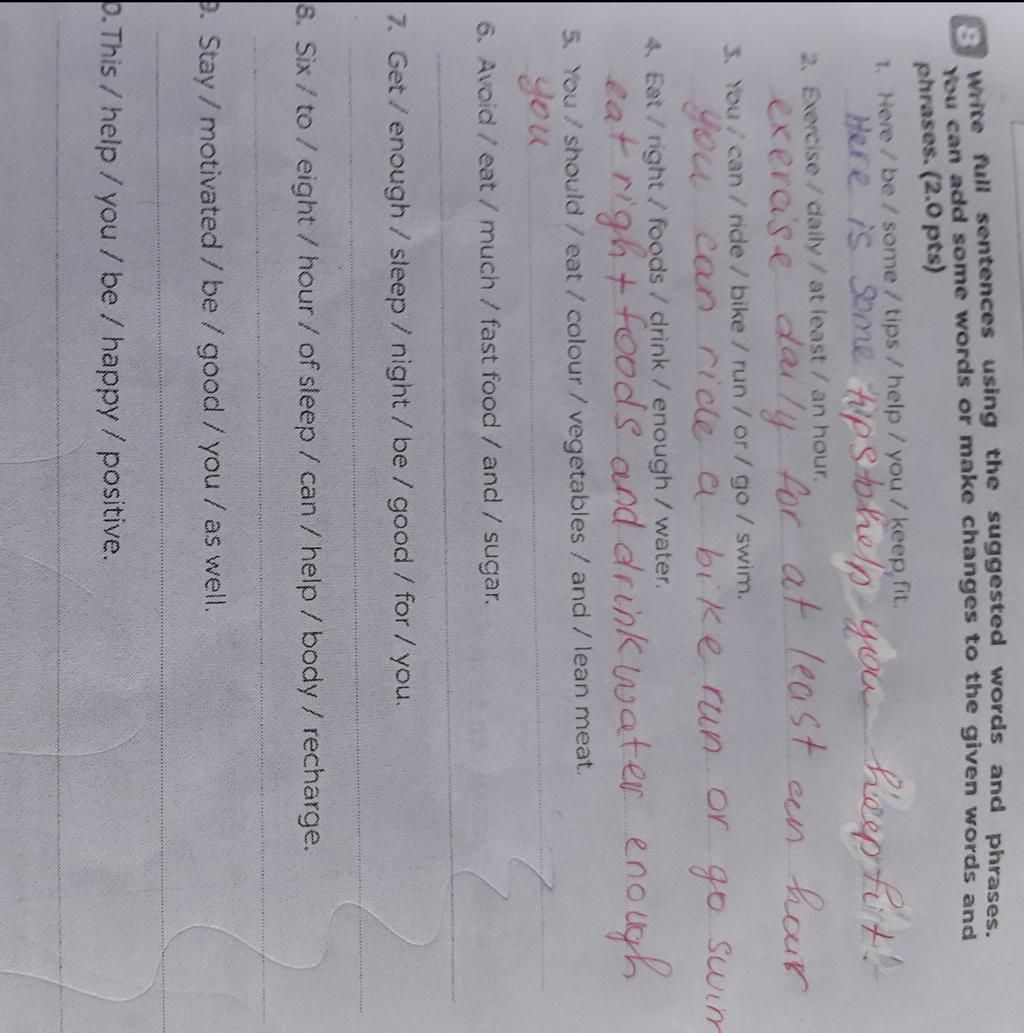 8 Write full sentences using the suggested words and phrases.
You can add some words or make changes to the given words and
phrases. (2.0 pts)
1. Here / be / some / tips / help / you / keep fit.
Here is some tips to help you keep fit.
2. Exercise / daily / at least / an hour.
exercise daily for at least an hour
3. You / can / ride / bike / run / or / go / swim.
you can ride a bike run or go swim
4. Eat / right / foods / drink / enough / water.
eat right foods and drink water enough
5. You / should / eat / colour / vegetables / and / lean meat.
you
6. Avoid / eat / much / fast food / and / sugar.
7. Get / enough / sleep / night / be / good / for / you.
8. Six / to / eight / hour / of sleep / can / help / body / recharge.
9. Stay / motivated / be / good / you / as well.
0. This / help / you / be / happy / positive.